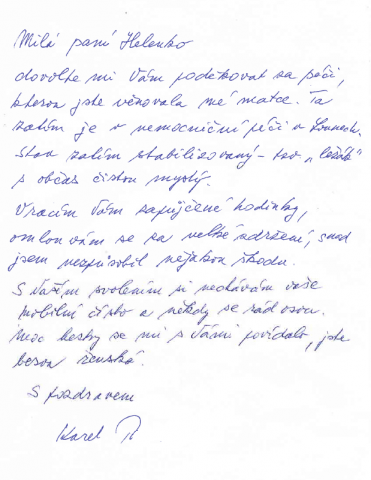 Milá paní Helenko
dovolte mi Vám poděkovat za péči,
kterou jste věnovala mé matce. Ta
zatím je v nemocniční péči v Lounech.
Stav zatím stabilizovaný - tzv "ležák"
s občas čistou myslý.
Vracím Vám zapůjčené hodinky,
omlouvám se za velké zdržení, snad
jsem nezpůsobil nějakou škodu.
S Vaším svolením si nechávám vaše
mobilní číslo a někdy se rád ozvu.
Moc hezky se mi s Vámi povídalo, jste
bezva ženská.
S pozdravem
Karel